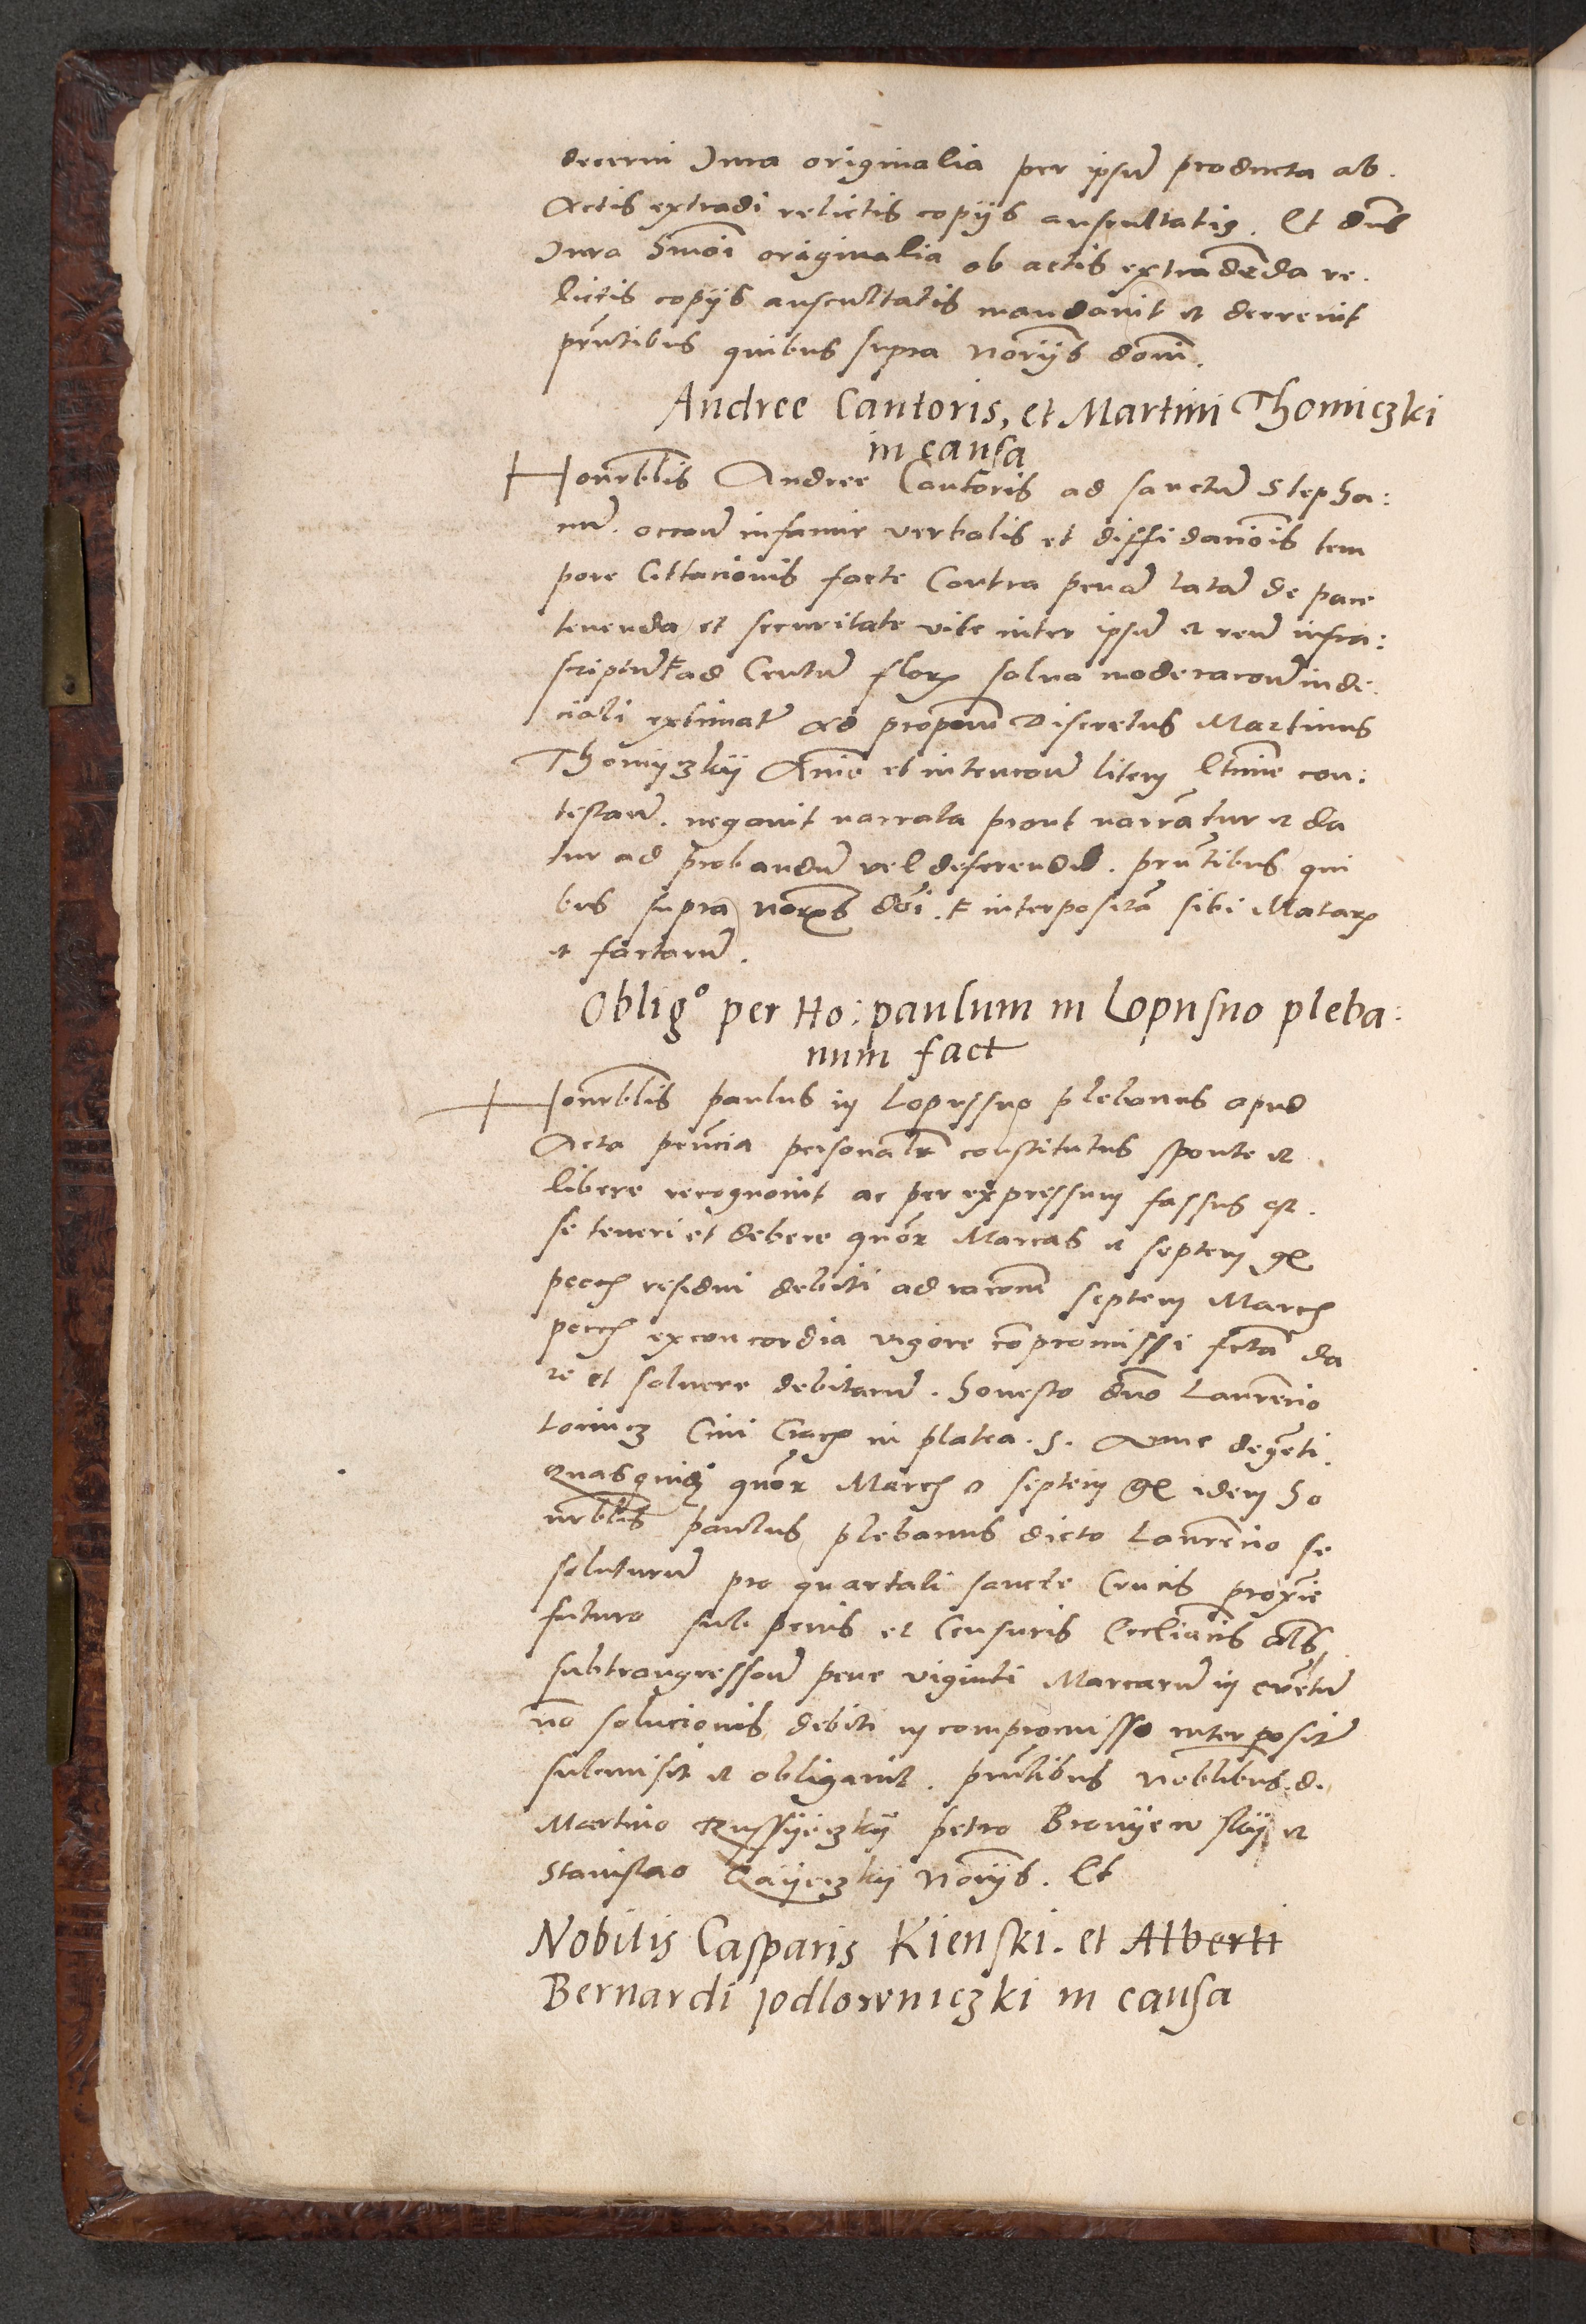 decerni Jura originalia per ipsum producta ab.
Actis extradi relictis copijs auscultatis. Et dns
Jura originalia ab actis extradenda re.
lictis copijs auscultatis mandavit et decrevit
pntibus quibus supra Norijs
Andree Cantoris, et Martini Thomiczki
in causa
Honrblis Andree Cantoris ad sanctum Stepha:
num. occone infamie verbalis et diffidacionis tem
pore Cittacionis facte Contra penam latam de pace
tenenda et securitate vite inter ipsum et reum infra:
scriptum ad Centum flor salva moderacone iudi
ciali extimatur ad propositum Discretus Martinus
Thomyczkij Anio et intencone litem ltime con:
testan. negavit narrata prout narrantur et da
tur ad probandum vel deferendum. pntibus qui
bus supra Norijs interpositam sibi Matar
et factarum.
Oblig° per Ho: paulum in Lopusno pleba:
num fact
Honrblis paulus in Lopussno plebanus apud
Acta pncia personalr constitutus sponte et
libere recognovit ac per expressum fassus est.
se teneri et debere quor Marcas et septem gr
pecc residui debiti ad raconem septem Marc
pecc ex concordia vigore compromissi fctam da
re et solvere debitarum. honesto dno Laurencio
Civi Crac in platea. S. Anne degenti.
Quasquid quor Marc et septem gr idem ho
nrblis paulus plebanus dicto Laurencio se
soluturum pro quartali sancte Crucis proxime
futuro sub penis et Censuris Eccliacis als
sub trangressone pene viginti Marcarum in eventum
no solucionis debiti in compromisso interposit
submisit et obligavit. pntibus Noblibus. d.
Martino Russyeczkij petro Bronyewskij et
Stanislao Norijs. Et
Nobilis Casparis Kienski. et Alberti
Bernardi jodlowniczki in causa